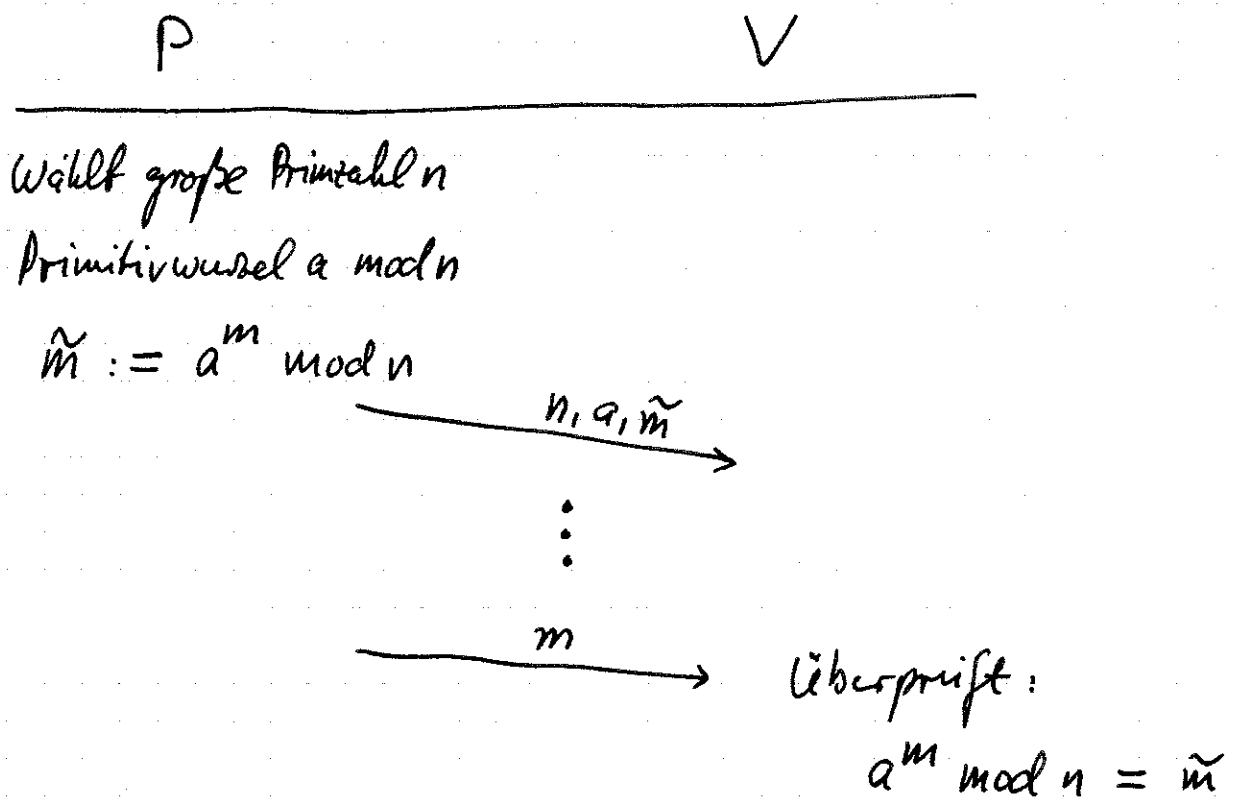 P V
Wählt große Primzahl n
Primitivwurzel a mod n
m̃ := a^m mod n
n, a, m̃
⋮
m
Überprüft:
a^m mod n = m̃